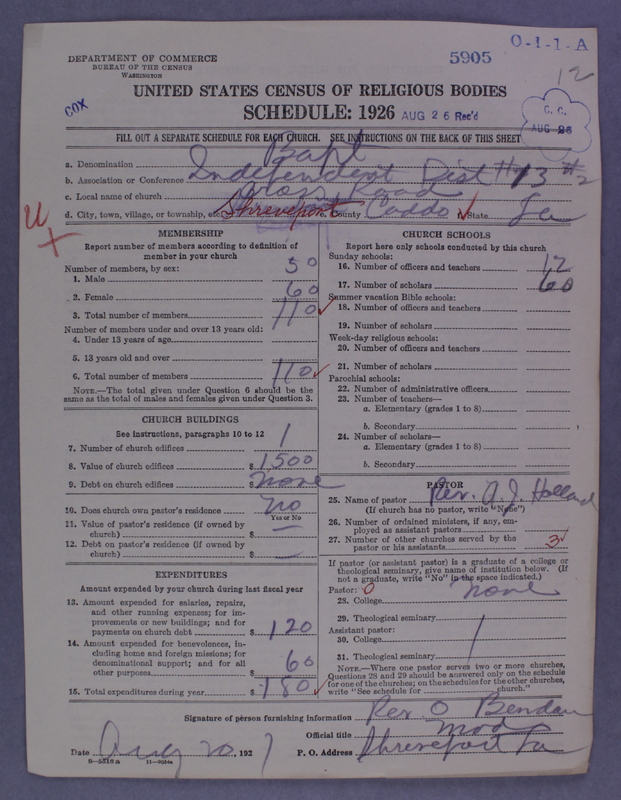 DEPARTMENT OF COMMERCE
BUREAU OF THE CENSUS
WASHINGTON
5905
O-1-1-A
12
COX
UNITED STATES CENSUS OF RELIGIOUS BODIES
SCHEDULE: 1926
AUG 26 Rec'd
C. C.
AUG 26
FILL OUT A SEPARATE SCHEDULE FOR EACH CHURCH. SEE INSTRUCTIONS ON THE BACK OF THIS SHEET
a. Denomination Bapt
b. Association or Conference Independent Dist # 13 #2
c. Local name of church Cross Road
d. City, town, village, or township, etc. Shreveport e. County Caddo f. State La
MEMBERSHIP
Report number of members according to definition of
member in your church
Number of members, by sex:
1. Male 50
2. Female 60
3. Total number of members 110
Number of members under and over 13 years old:
4. Under 13 years of age
5. 13 years old and over
6. Total number of members 110
NOTE.—The total given under Question 6 should be the
same as the total of males and females given under Question 3.
CHURCH BUILDINGS
See instructions, paragraphs 10 to 12
7. Number of church edifices 1
8. Value of church edifices $ 1500
9. Debt on church edifices $ None
10. Does church own pastor's residence? no
Yes or No
11. Value of pastor's residence (if owned by
church) $ —
12. Debt on pastor's residence (if owned by
church) $ —
EXPENDITURES
Amount expended by your church during last fiscal year
13. Amount expended for salaries, repairs,
and other running expenses; for im-
provements or new buildings; and for
payments on church debt $ 120
14. Amount expended for benevolences, in-
cluding home and foreign missions; for
denominational support; and for all
other purposes $ 60
15. Total expenditures during year $ 180
CHURCH SCHOOLS
Report here only schools conducted by this church
Sunday schools:
16. Number of officers and teachers 12
17. Number of scholars 60
Summer vacation Bible schools:
18. Number of officers and teachers
19. Number of scholars
Week-day religious schools:
20. Number of officers and teachers
21. Number of scholars
Parochial schools:
22. Number of administrative officers
23. Number of teachers—
a. Elementary (grades 1 to 8)
b. Secondary
24. Number of scholars—
a. Elementary (grades 1 to 8)
b. Secondary
PASTOR
25. Name of pastor Rev. A. J. Holland
(If church has no pastor, write "None")
26. Number of ordained ministers, if any, em-
ployed as assistant pastors
27. Number of other churches served by the
pastor or his assistants 3
If pastor (or assistant pastor) is a graduate of a college or
theological seminary, give name of institution below. (If
not a graduate, write "No" in the space indicated.)
Pastor: 0 none
28. College
29. Theological seminary
Assistant pastor:
30. College
31. Theological seminary
NOTE.—Where one pastor serves two or more churches,
Questions 28 and 29 should be answered only on the schedule
for one of the churches; on the schedules for the other churches,
write "See schedule for church."
Signature of person furnishing information Rev O Bendaw
Official title Mod
Date Aug 20, 1927 P. O. Address Shreveport La